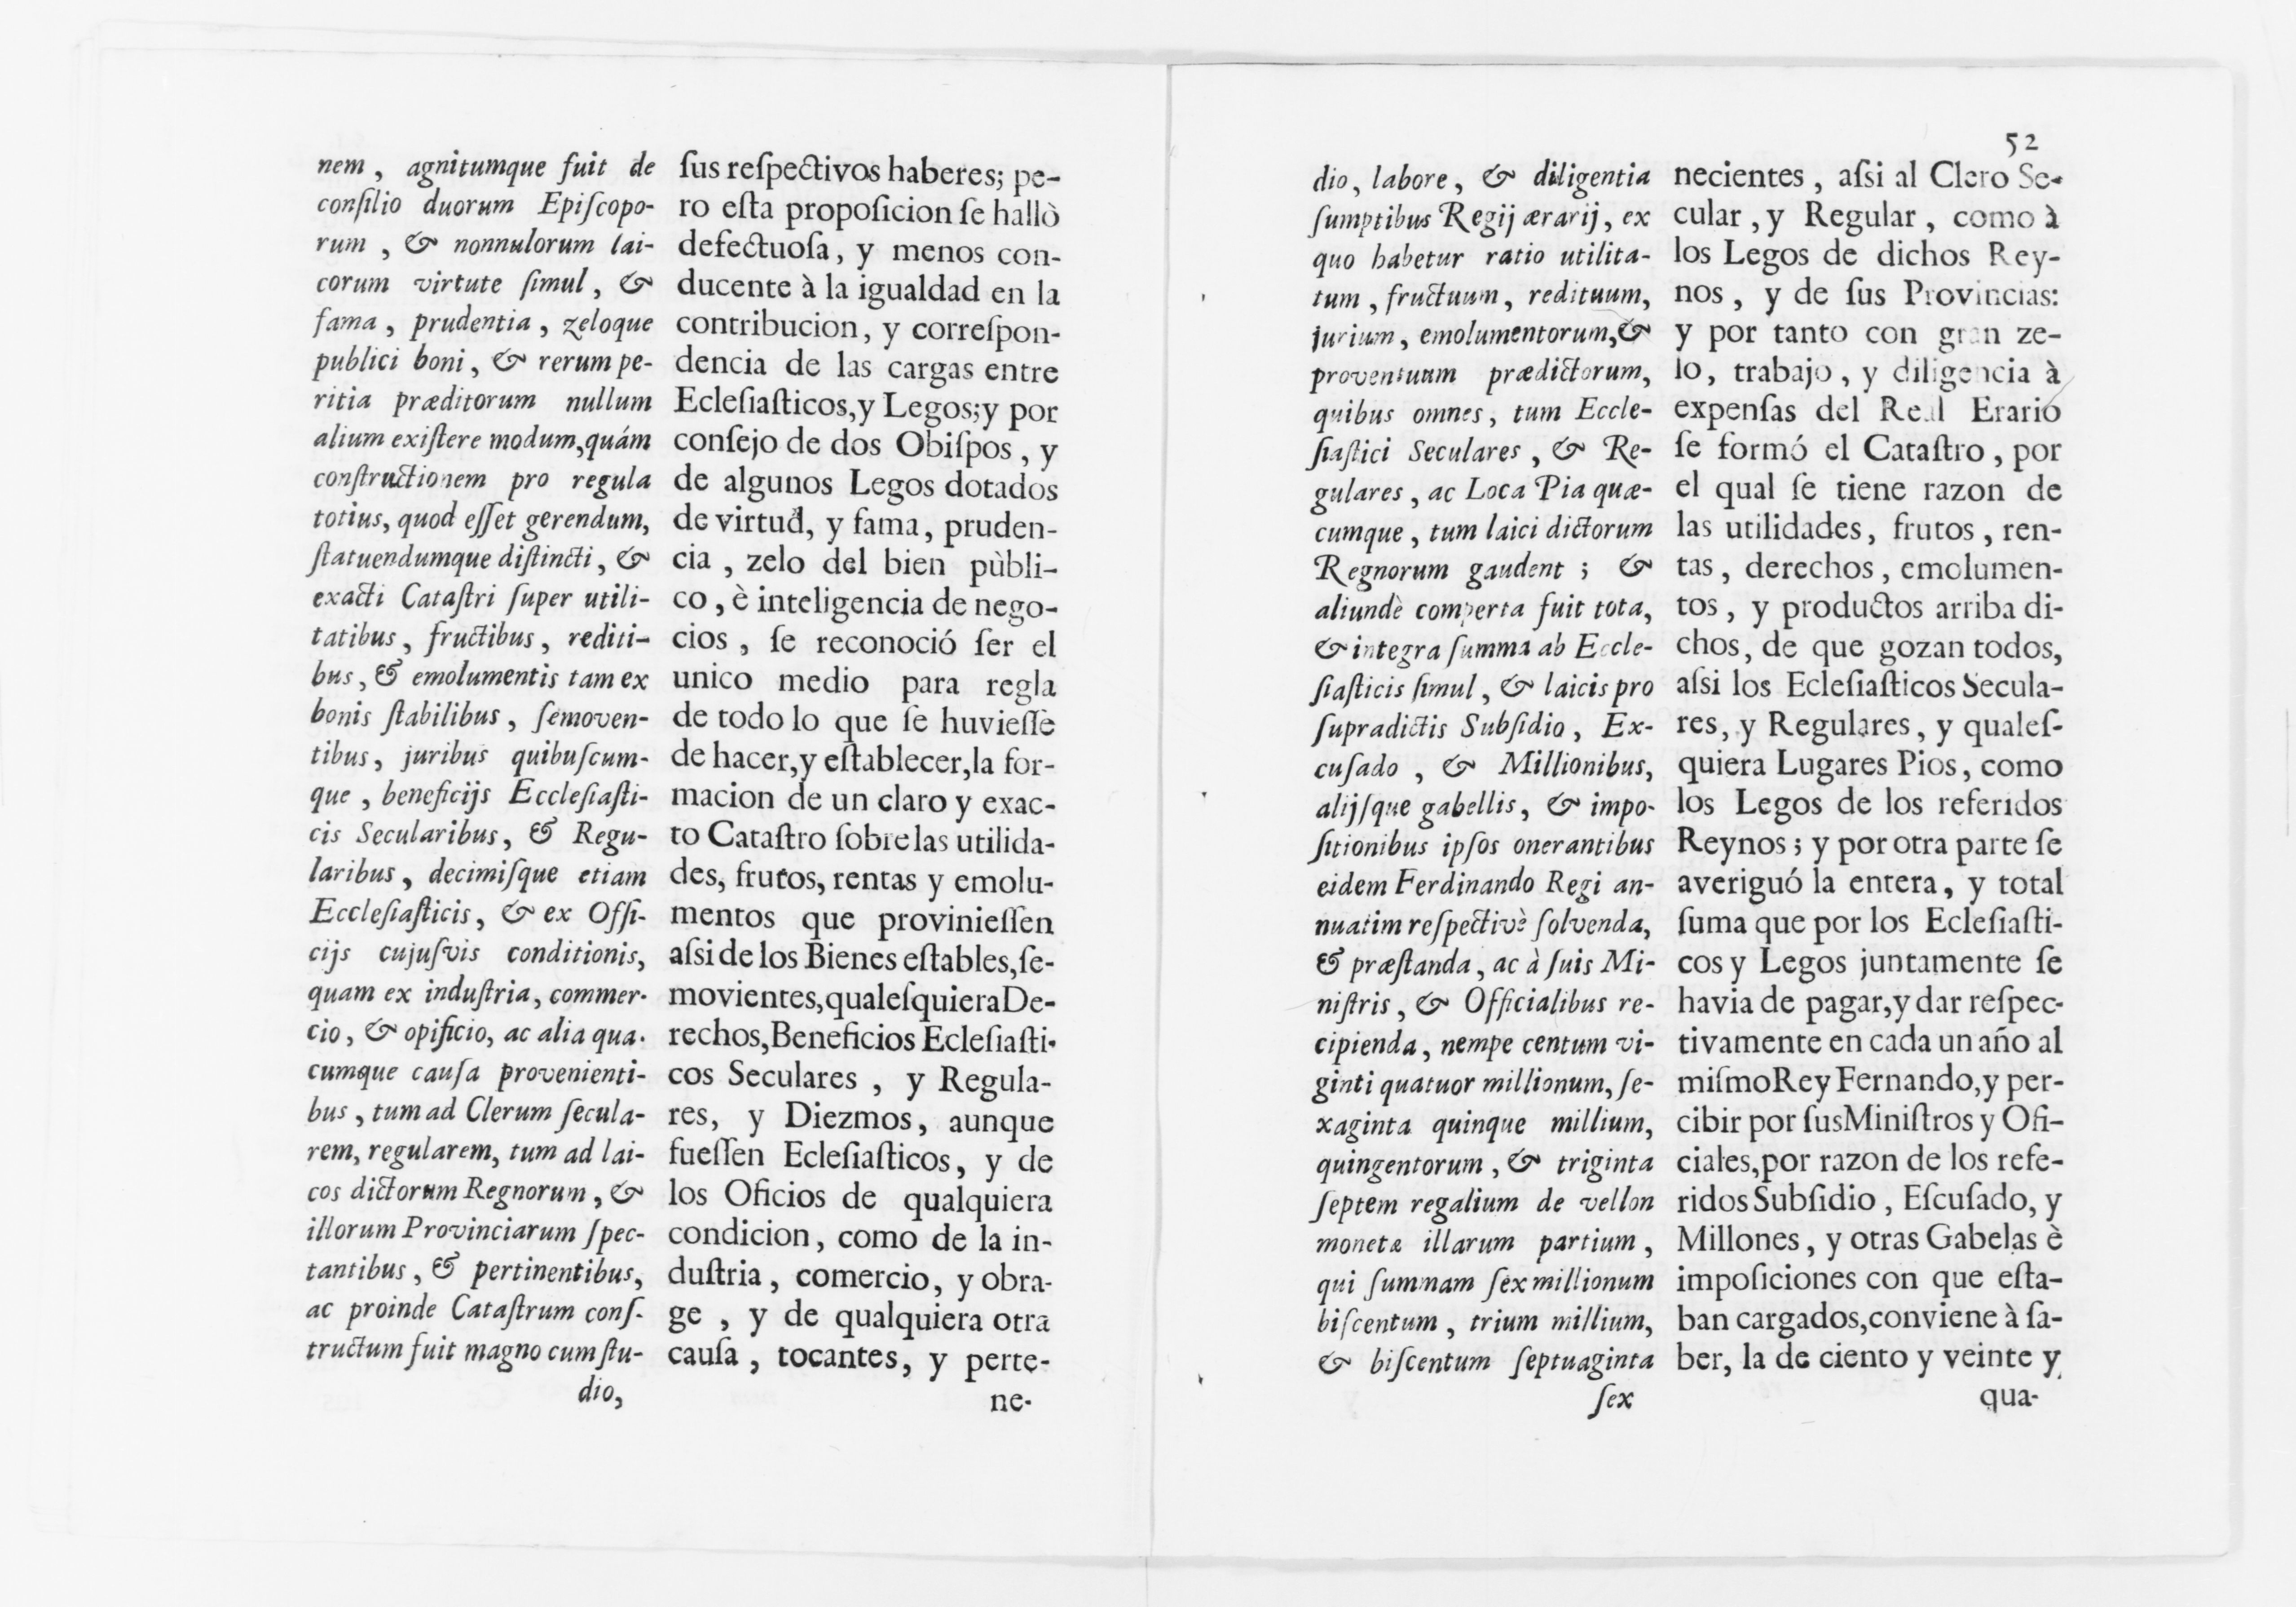 nem, agnitumque fuit de
conſilio duorum Epiſcopo-
rum, & nonnulorum lai-
corum virtute ſimul, &
fama, prudentia, zeloque
publici boni, & rerum pe-
ritia præditorum nullum
alium exiſtere modum, quám
conſtructionem pro regula
totius, quod eſſet gerendum,
ſtatuendumque diſtincti, &
exacti Cataſtri ſuper utili-
tatibus, fructibus, rediti-
bus, & emolumentis tam ex
bonis ſtabilibus, ſemoven-
tibus, juribus quibuſcum-
que, beneficijs Eccleſiaſti-
cis Secularibus, & Regu-
laribus, decimiſque etiam
Eccleſiaſticis, & ex Offi-
cijs cujuſvis conditionis,
quam ex induſtria, commer-
cio, & opificio, ac alia qua-
cumque cauſa provenienti-
bus, tum ad Clerum ſecula-
rem, regularem, tum ad lai-
cos dictorum Regnorum, &
illorum Provinciarum ſpec-
tantibus, & pertinentibus,
ac proinde Cataſtrum conſ-
tructum fuit magno cum ſtu-
dio,
ſus reſpectivos haberes; pe-
ro eſta propoſicion ſe hallò
defectuoſa, y menos con-
ducente à la igualdad en la
contribucion, y correſpon-
dencia de las cargas entre
Ecleſiaſticos, y Legos; y por
conſejo de dos Obiſpos, y
de algunos Legos dotados
de virtud, y fama, pruden-
cia, zelo del bien pùbli-
co, è inteligencia de nego-
cios, ſe reconoció ſer el
unico medio para regla
de todo lo que ſe huvieſſe
de hacer, y eſtablecer, la for-
macion de un claro y exac-
to Cataſtro ſobre las utilida-
des, frutos, rentas y emolu-
mentos que provinieſſen
aſsi de los Bienes eſtables, ſe-
movientes, qualeſquiera De-
rechos, Beneficios Ecleſiaſti-
cos Seculares, y Regula-
res, y Diezmos, aunque
fueſſen Ecleſiaſticos, y de
los Oficios de qualquiera
condicion, como de la in-
duſtria, comercio, y obra-
ge, y de qualquiera otra
cauſa, tocantes, y perte-
ne-
52
dio, labore, & diligentia
ſumptibus Regij ærarij, ex
quo habetur ratio utilita-
tum, fructuum, redituum,
jurium, emolumentorum, &
proventuum prædictorum,
quibus omnes, tum Eccle-
ſiaſtici Seculares, & Re-
gulares, ac Loca Pia quæ-
cumque, tum laici dictorum
Regnorum gaudent; &
aliundè comperta fuit tota,
& integra ſumma ab Eccle-
ſiaſticis ſimul, & laicis pro
ſupradictis Subſidio, Ex-
cuſado, & Millionibus,
alijſque gabellis, & impo-
ſitionibus ipſos onerantibus
eidem Ferdinando Regi an-
nuatim reſpectivè ſolvenda,
& præſtanda, ac à ſuis Mi-
niſtris, & Officialibus re-
cipienda, nempe centum vi-
ginti quatuor millionum, ſe-
xaginta quinque millium,
quingentorum, & triginta
ſeptem regalium de vellon
monetæ illarum partium,
qui ſummam ſex millionum
biſcentum, trium millium,
& biſcentum ſeptuaginta
ſex
necientes, aſsi al Clero Se-
cular, y Regular, como à
los Legos de dichos Rey-
nos, y de ſus Provincias:
y por tanto con gran ze-
lo, trabajo, y diligencia à
expenſas del Real Erario
ſe formó el Cataſtro, por
el qual ſe tiene razon de
las utilidades, frutos, ren-
tas, derechos, emolumen-
tos, y productos arriba di-
chos, de que gozan todos,
aſsi los Ecleſiaſticos Secula-
res, y Regulares, y qualeſ-
quiera Lugares Pios, como
los Legos de los referidos
Reynos; y por otra parte ſe
averiguó la entera, y total
ſuma que por los Ecleſiaſti-
cos y Legos juntamente ſe
havia de pagar, y dar reſpec-
tivamente en cada un año al
miſmo Rey Fernando, y per-
cibir por ſus Miniſtros y Ofi-
ciales, por razon de los refe-
ridos Subſidio, Eſcuſado, y
Millones, y otras Gabelas è
impoſiciones con que eſta-
ban cargados, conviene à ſa-
ber, la de ciento y veinte y
qua-